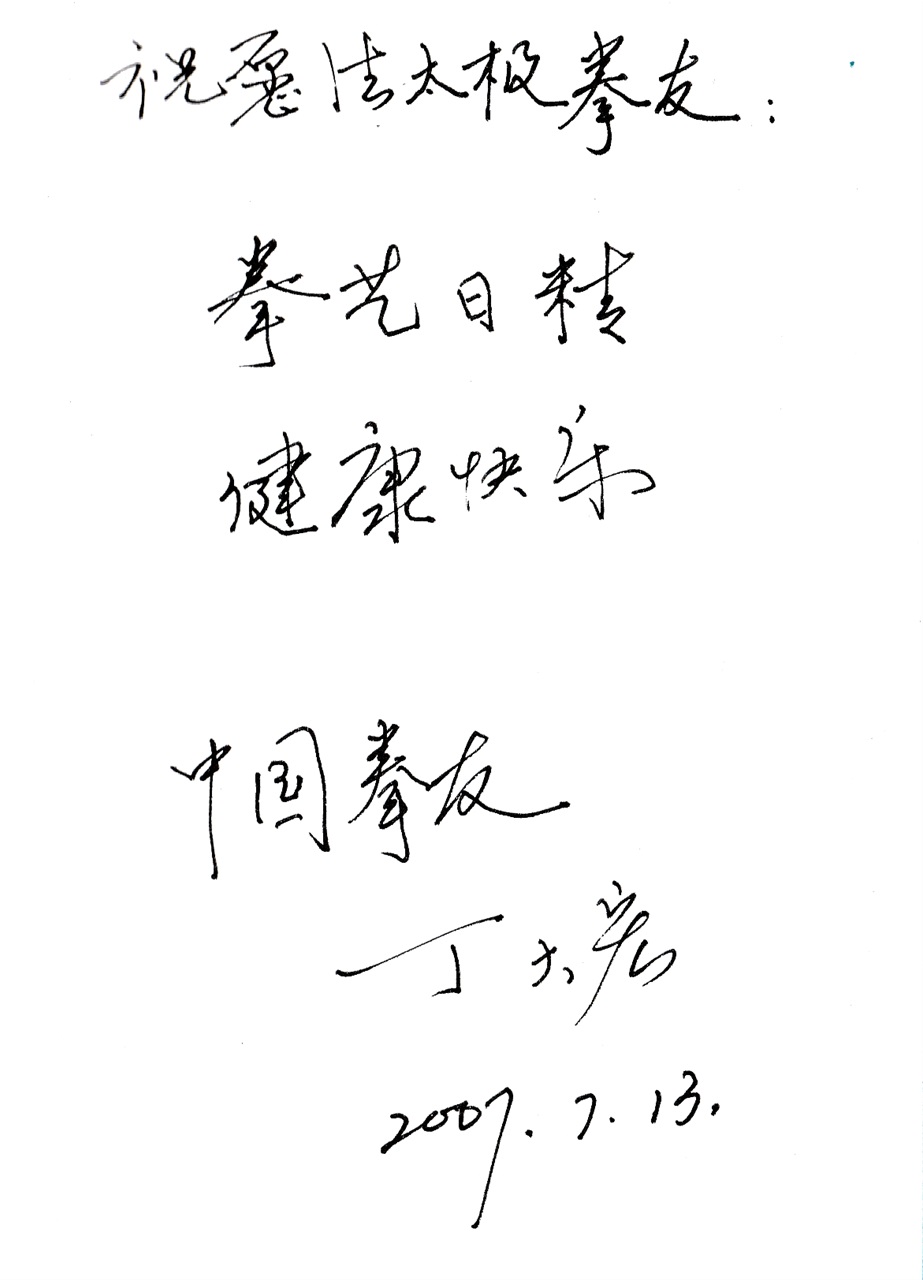 祝愿法太极拳友：
拳艺日精
健康快乐
中国拳友
丁大宏
2007.7.13.